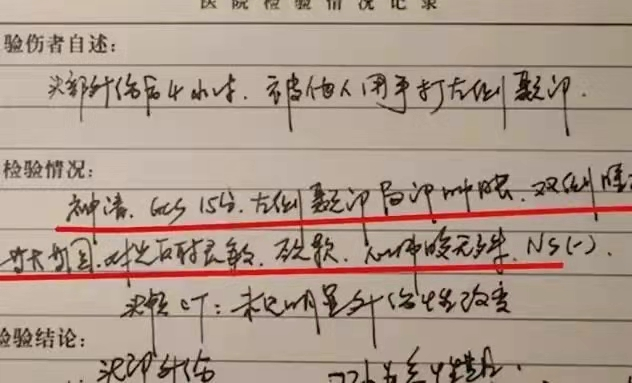 医院检验情况记录
验伤者自述:
头部外伤后4小时.被他人用手打左侧颞部.
检验情况:
神清.GCS 15分.左侧颞部局部肿胀.双侧瞳
等大等圆.对光反射灵敏.颈软.NS(-).
头颅CT:未见明显外伤性改变
检验结论:
头部外伤